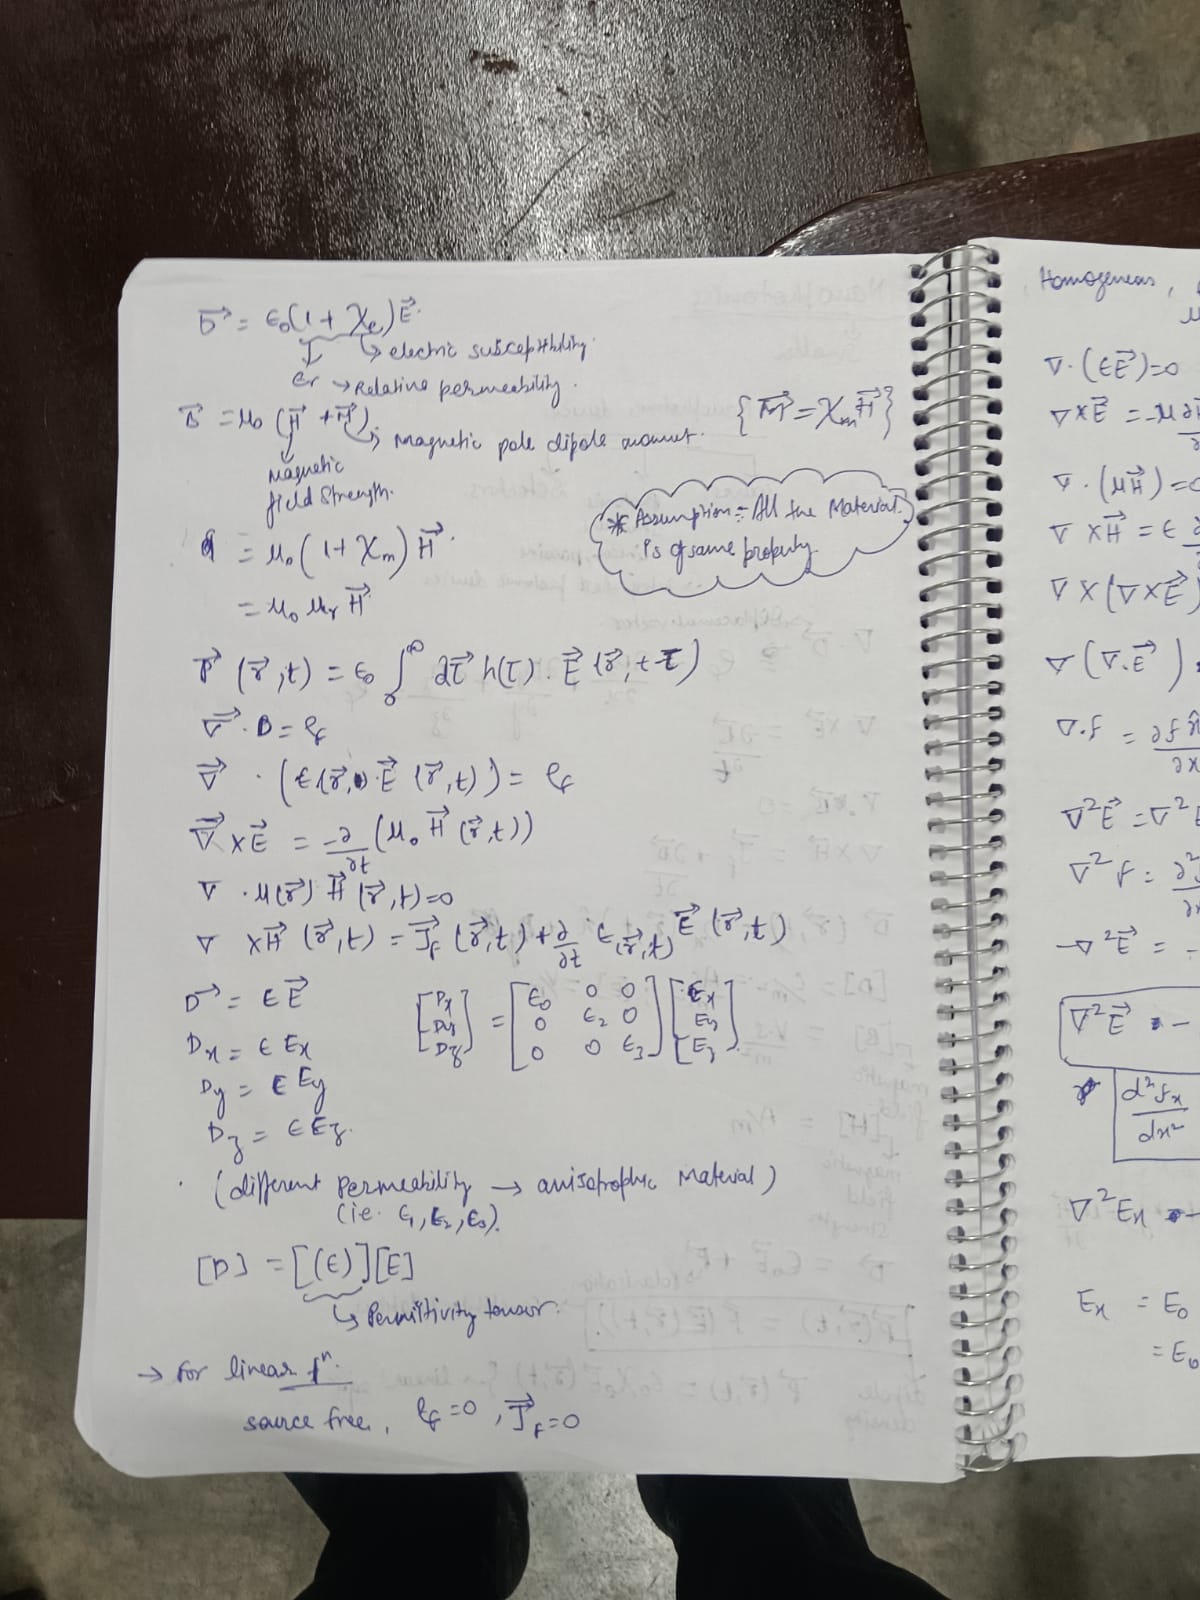 D⃗ = ε₀(1 + χₑ)E⃗.
↳ electric susceptibility.
εr → Relative permeability.
B⃗ = μ₀ (H⃗ + M⃗) ↳ Magnetic pole dipole moment. {M⃗ = χₘH⃗}
Magnetic
field Strength.
* Assumption :- All the Material
is of same property.
= μ₀ (1 + χₘ) H⃗.
= μ₀ μᵣ H⃗
P⃗ (r⃗, t) = ε₀ ∫₀^∞ dτ h(τ) . E⃗ (r⃗, t-τ)
∇⃗ . D = ρf
∇⃗ . (ε(r⃗,) . E⃗ (r⃗, t)) = ρf
∇⃗ × E⃗ = -∂/∂t (μ₀ H⃗ (r⃗, t))
∇ . μ(r⃗) H⃗ (r⃗, t) = 0
∇ × H⃗ (r⃗, t) = J⃗f (r⃗, t) + ∂/∂t ε(r⃗, t) E⃗ (r⃗, t)
D⃗ = ε E⃗
[Dx Dy Dz] = [ε₀ 0 0 0 ε₂ 0 0 0 ε₃] [Ex Ey Ez]
Dx = ε Ex
Dy = ε Ey
Dz = ε Ez.
(different permeability → anisotrophic Material)
(ie. ε₁, ε₂, ε₃).
[D] = [(ε)] [E]
↳ Permittivity tensor.
→ For linear fⁿ.
source free, ρf = 0, J⃗f = 0
Homogeneous,
∇ . (εE⃗) = 0
∇ × E⃗ = -μ ∂
∇ . (μH⃗) = 0
∇ × H⃗ = ε
∇ × (∇ × E⃗)
∇ (∇ . E⃗)
∇ . f = ∂f x̂ / ∂x
∇²E⃗ = ∇²E
∇² f = ∂²f
∇²E⃗ = -
∇²E⃗ = -
d²fx / dx²
∇²Ex = -
Ex = E₀
= E₀